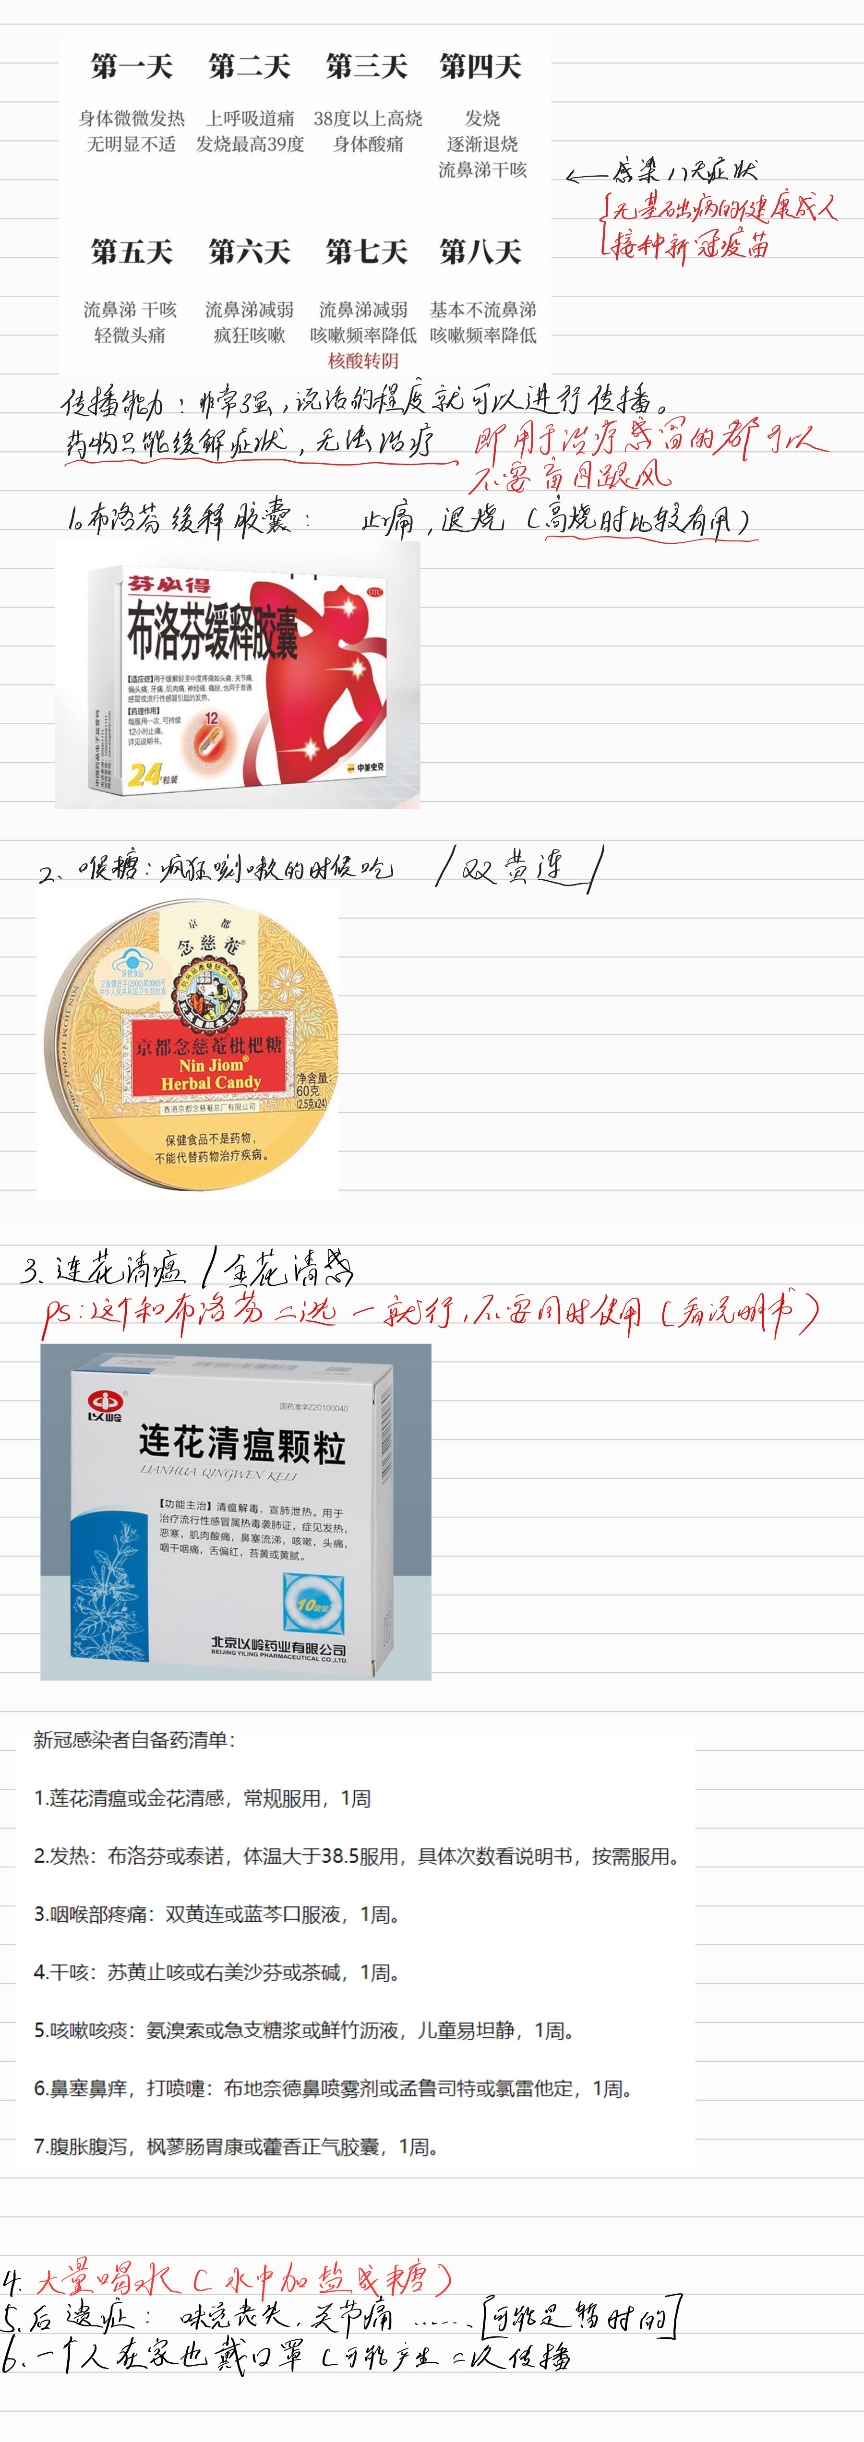 第一天 第二天 第三天 第四天
身体微微发热 上呼吸道痛 38度以上高烧 发烧
无明显不适 发烧最高39度 身体酸痛 逐渐退烧
流鼻涕干咳
←感染八天症状
无基础病的健康成人
接种新冠疫苗
第五天 第六天 第七天 第八天
流鼻涕 干咳 流鼻涕减弱 流鼻涕减弱 基本不流鼻涕
轻微头痛 疯狂咳嗽 咳嗽频率降低 咳嗽频率降低
核酸转阴
传播能力：非常强，说话的程度就可以进行传播。
药物只能缓解症状，无法治疗 即用于治疗感冒的都可以
不要盲目跟风
1。布洛芬缓释胶囊： 止痛，退烧（高烧时比较有用）
芬必得
OTC
布洛芬缓释胶囊
【适应症】用于缓解轻至中度疼痛如头痛、关节痛、
偏头痛、牙痛、肌肉痛、神经痛、痛经。也用于普通
感冒或流行性感冒引起的发热。
【药理作用】
每服用一次，可持续
12小时止痛。
详见说明书。
12
24粒装
中美史克
2、喉糖：疯狂咳嗽的时候吃 /双黄连/
京都
念慈菴®
保健食品
京都念慈菴枇杷糖
Nin Jiom®
Herbal Candy
净含量：
60克
(2.5克x24)
香港京都念慈菴总厂有限公司
保健食品不是药物，
不能代替药物治疗疾病。
NIN JIOM Herbal Candy
3、连花清瘟/金花清感
PS：这个和布洛芬二选一就行，不要同时使用（看说明书）
以岭
国药准字Z20100040
连花清瘟颗粒
LIANHUA QINGWEN KELI
【功能主治】清瘟解毒，宣肺泄热。用于
治疗流行性感冒属热毒袭肺证，症见发热，
恶寒，肌肉酸痛，鼻塞流涕，咳嗽，头痛，
咽干咽痛，舌偏红，苔黄或黄腻。
10袋装
北京以岭药业有限公司
BEIJING YILING PHARMACEUTICAL CO.,LTD.
新冠感染者自备药清单：
1.莲花清瘟或金花清感，常规服用，1周
2.发热：布洛芬或泰诺，体温大于38.5服用，具体次数看说明书，按需服用。
3.咽喉部疼痛：双黄连或蓝芩口服液，1周。
4.干咳：苏黄止咳或右美沙芬或茶碱，1周。
5.咳嗽咳痰：氨溴索或急支糖浆或鲜竹沥液，儿童易坦静，1周。
6.鼻塞鼻痒，打喷嚏：布地奈德鼻喷雾剂或孟鲁司特或氯雷他定，1周。
7.腹胀腹泻，枫蓼肠胃康或藿香正气胶囊，1周。
4. 大量喝水（水中加盐或糖）
5.后遗症： 味觉丧失、关节痛 ……、[可能是暂时的]
6.一个人在家也戴口罩（可能产生二次传播